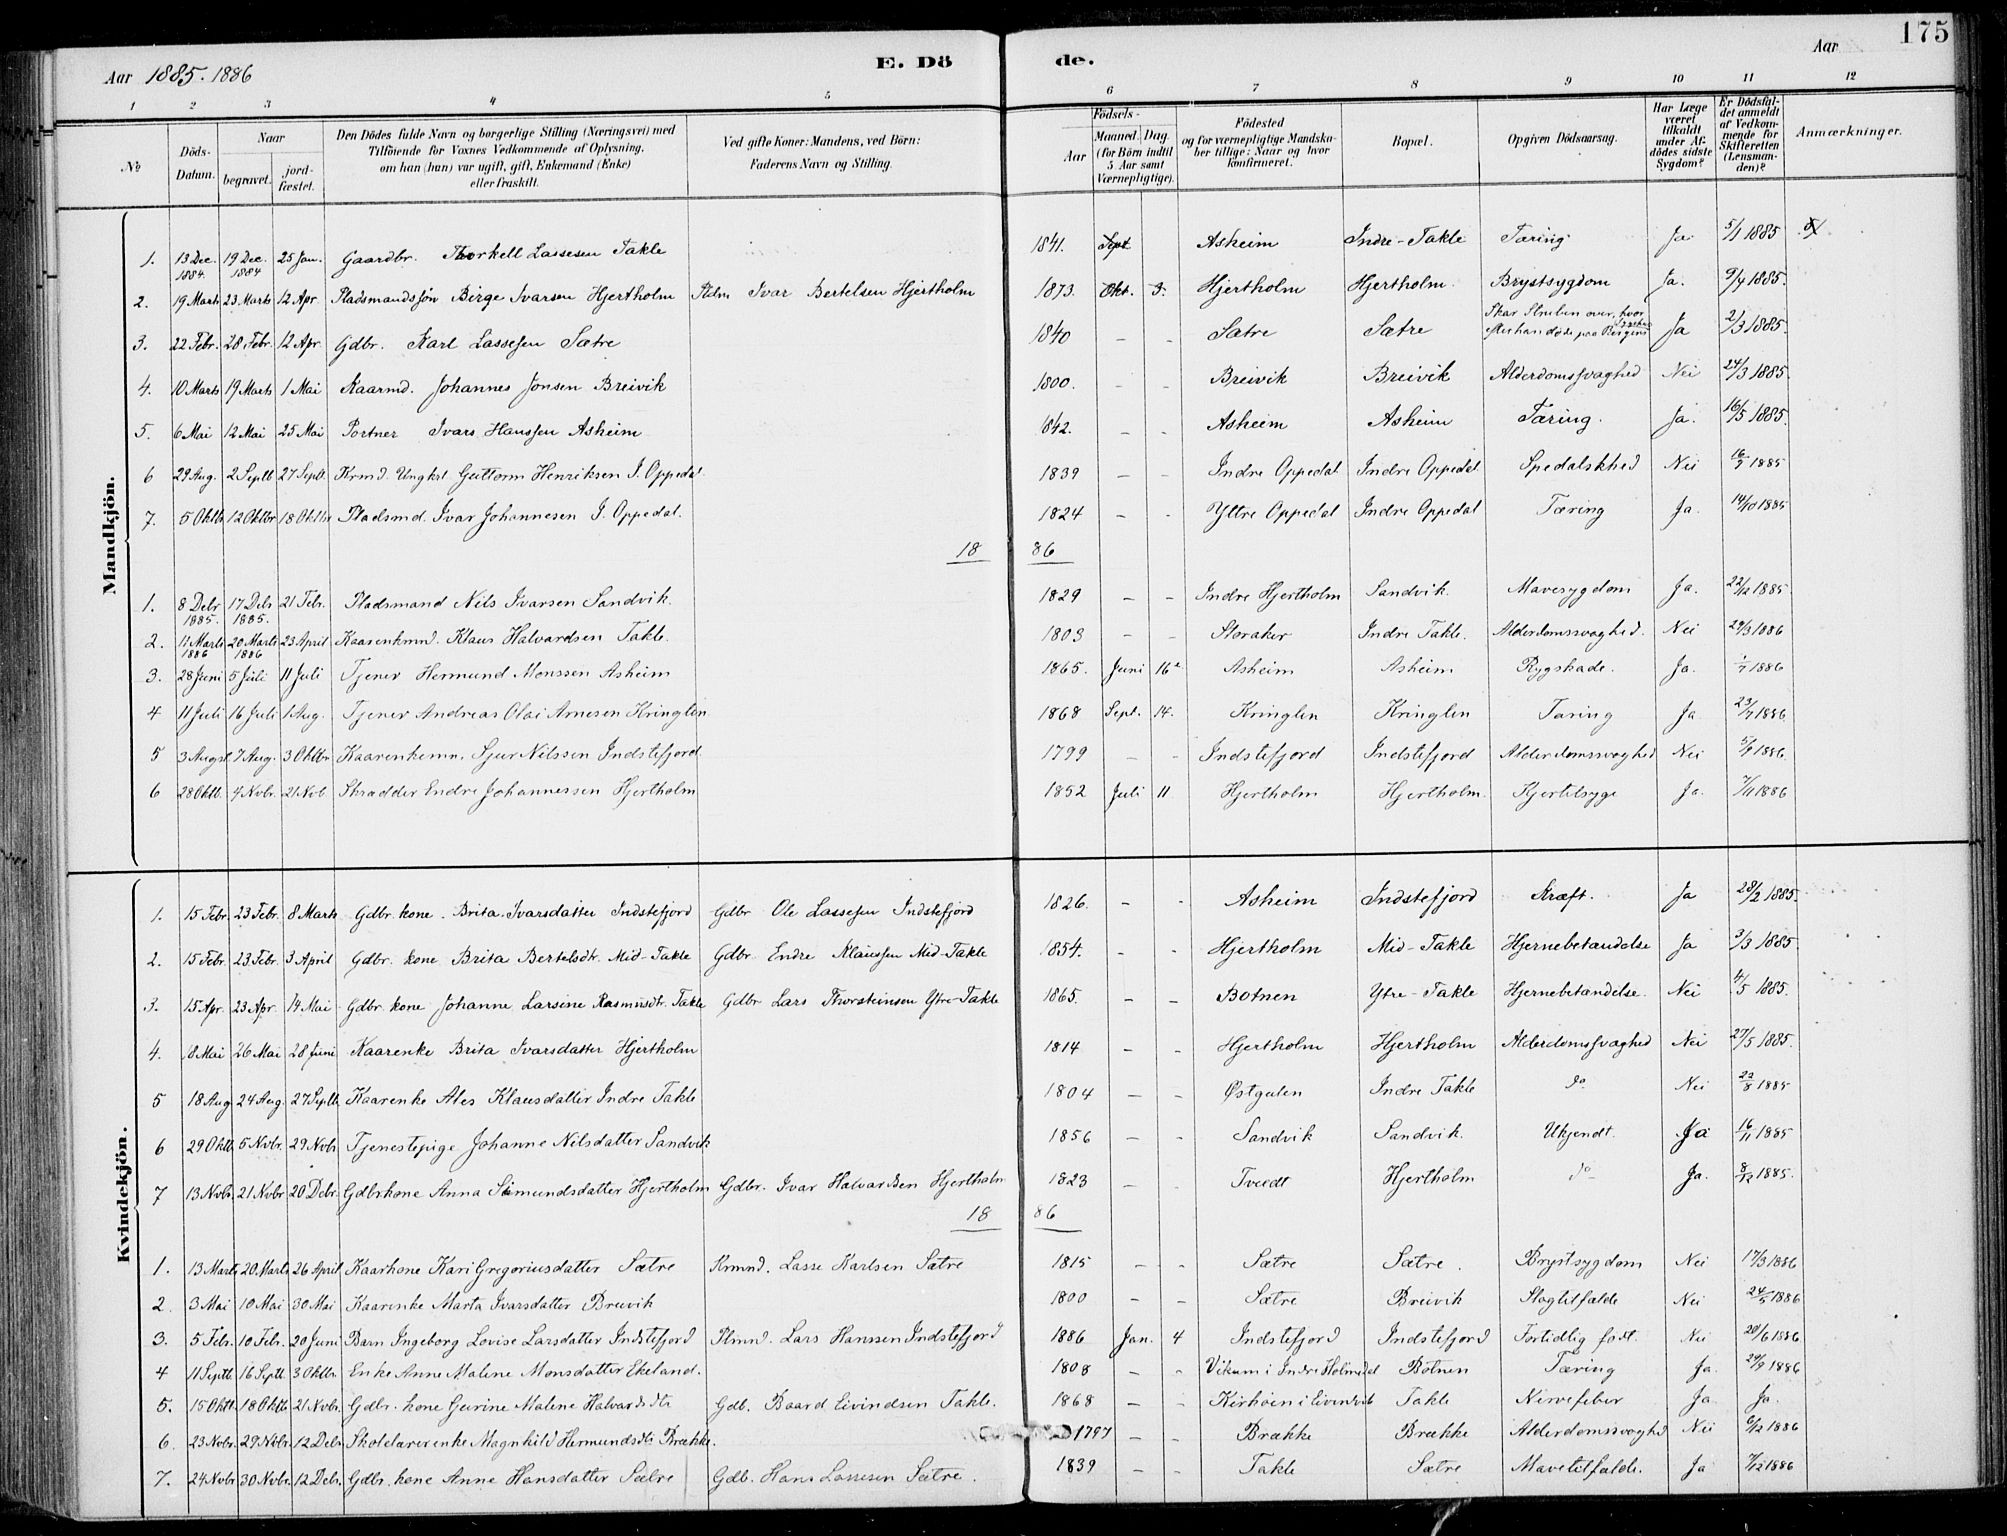 175
Aar 1885. 1886 E. Dö de. Aar
1 2 3 4 5 6 7 8 9 10 11 12
No
Döds-Datum.
Naar begravet. jordfæstet.
Den Dödes fulde Navn og borgerlige Stilling (Næringsvei) med Tilföiende for Voxnes Vedkommende af Oplysning, om han (hun) var ugift, gift, Enkemand (Enke) eller fraskilt.
Ved gifte Koner: Mandens, ved Börn: Faderens Navn og Stilling.
Födsels- Aar Maaned. Dag. (for Börn indtil 5 Aar samt Værnepligtige).
Födested og for værnepligtige Mandskaber tillige: Naar og hvor konfirmeret.
Bopæl.
Opgiven Dödsaarsag.
Har Læge været tilkaldt under Afdödes sidste Sygdom?
Er Dödsfaldet anmeldt af Vedkommende for Skifteretten (Lensmanden)?
Anmærkninger.
Mandkjön.
1. 13 Dec. 1884. 19 Dec. 1884 25 Jan. Gaardbr. Thorkell Lassesen Takle 1841. Sept Asheim Indre-Takle Tæring Ja 5/1 1885
2. 19 Marts 23 Marts 12 Apr. Pladsmandssøn Birge Ivarsen Hjertholm Pldm Ivar Bertelsen Hjertholm 1873. Okt. 3. Hjertholm Hjertholm. Brystsygdom Ja. 9/4 1885.
3. 22 Febr. 28 Febr. 12 Apr. Gdbr. Karl Lassesen Sætre 1840 - - Sætre Sætre Skar Struben over, hvorefter han døde paa Bergens Sygehus Ja 2/3 1885.
4. 10 Marts 19 Marts 1 Mai Kaarmd. Johannes Jonsen Breivik 1800. - - Breivik Breivik Alderdomssvaghed Nei 24/3 1885.
5. 6 Mai 12 Mai 25 Mai Portner Ivar Hanssen Asheim 1842. - - Asheim Asheim Tæring. Ja. 16/5 1885.
6 29 Aug. 2 Septb 27 Septb. Krmd. Ungkrl Guttorm Henriksen I. Oppedal. 1839 - - Indre Oppedal Indre Oppedal Spedalskhed Nei 16/9 1885
7. 5 Oktb 12 Oktbr 18 Oktbr Pladsmd. Ivar Johannesen I. Oppedal. 1824 - - Yttre Oppedal Indre Oppedal Tæring Ja. 14/10 1885
18 86
1. 8 Debr 1885. 17 Debr 1885. 21 Febr. Pladsmand Nils Ivarsen Sandvik. 1829 - - Indre Hjertholm Sandvik. Mavesygdom Ja. 22/12 1885.
2. 11 Marts 1886 20 Marts 1886 23 April Kaarenkmd. Klaus Halvardsen Takle. 1803 - - Storaker Indre Takle. Alderdomssvaghed. Nei 29/3 1886
3. 28 Juni 5 Juli 11 Juli Tjener Hermund Monssen Asheim 1865. Juni 16 Asheim Asheim Rygskade. Ja. 1/7 1886
4 11 Juli 16 Juli 1 Aug. Tjener Andreas Olai Arnesen Kringlen 1868 Sept. 14. Kringlen Kringlen Tæring Ja 23/7 1886
5 3 Augst 7 Aug. 3 Oktbr Kaarenkemn. Sjur Nilssen Indstefjord. 1799 - - Indstefjord Indstefjord Alderdomssvaghed Nei 5/9 1886.
6 28 Oktb. 4 Novbr. 21 Nvb Skrædder Endre Johannessen Hjertholm 1852 Juli 11 Hjertholm Hjertholm. Kjertelsyge Ja. 7/11 1886
Kvindekjön.
1. 15 Febr. 23 Febr. 8 Marts Gdbr. kone. Brita Ivarsdatter Indstefjord Gdbr Ole Lassesen Indstefjord 1826. - - Asheim Indstefjord Kræft. Ja 28/2 1885.
2. 15 Febr. 23 Febr. 3 April Gdbr. kone Brita Bertelsdtr. Mid-Takle Gdbr. Endre Klaussen Mid-Takle 1854. - - Hjertholm Mid-Takle Hjernebetændelse Ja 3/3 1885.
3. 15 Apr. 23 Apr. 14 Mai Gdbr kone Johanne Larsine Rasmusdtr. Takle Gdbr Lars Thorsteinsen Ytre-Takle 1865. - - Botnen Ytre-Takle Hjernebetændelse. Nei 4/5 1885.
4. 18 Mai 26 Mai 28 Juni Kaarenke Brita Ivarsdatter Hjertholm 1814 - - Hjertholm Hjertholm Alderdomssvaghed Nei 27/5 1885.
5 18 Aug 24 Aug. 27 Septb. Kaarenke Ales Klausdatter Indre Takle 1804 - - Østgulen Indre Takle do Nei 22/8 1885
6 29 Oktb 5 Novbr. 29 Novbr. Tjenestepige Johanne Nilsdatter Sandvik 1856 - - Sandvik Sandvik. Ukjendt. Ja 16/11 1885
7 13 Nvbr. 21 Nvbr 20 Debr. Gdbrkone Anna Simundsdatter Hjertholm Gdbr. Ivar Halvardsen Hjertholm 1823 - - Tveedt Hjertholm do Ja. 8/12 1885.
18 86
1. 13 Marts 20 Marts 26 April Kaarkone Kari Gregoriusdatter Sætre Krmnd. Lasse Karlsen Sætre 1815 - - Sætre Sætre. Brystsygdom Nei 17/3 1886
2. 3 Mai 10 Mai 30 Mai Kaarenke Marta Ivarsdatter Breivik 1800 - - Sætre Breivik Slagtilfælde Nei 24/5 1886
3. 5 Febr. 10 Febr. 20 Juni Barn Ingeborg Lovise Larsdatter Indstefjord Plmnd. Lars Hanssen Indstefjord 1886 Jan. 4 Indstefjord Indstefjord Fortidlig født. Nei 20/6 1886
4 11 Septb 16 Septb. 3 Oktbr. Enke Anne Malene Monsdatter Ekeland. 1808 - - Vikum i Indre Holmedal Botnen Tæring Ja. 24/9 1886
5. 15 Oktb 18 Oktb 21 Nvbr. Gdbr. kone Gurine Malene Halvardsdtr Gdb. Baard Eivindsen Takle. 1868 - - Kirhoin i Eivindvik Takle Nervefeber Ja. Ja.
6. 23 Nvbr. 29 Nvbr. 12 Debr. Skolelærerenke Magnhild Hermundsdtr Brække. 1797 - - Brække Brække Alderdomssvaghed Nei 6/12 1886
7. 24 Nvbr 30 Nvbr. 12 Debr. Gdbr. kone Anne Hansdatter Sætre Gdb. Hans Lassesen Sætre. 1839 - - Takle Sætre Mavetilfælde. Ja 7/12 1886